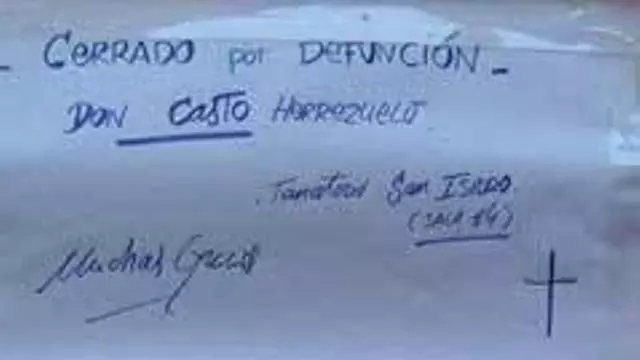 - CERRADO por DEFUNCIÓN -
DON CASTO HERREZUELO
Tanatorio San ISIDRO.
(SALA 14)
Muchas Gracias